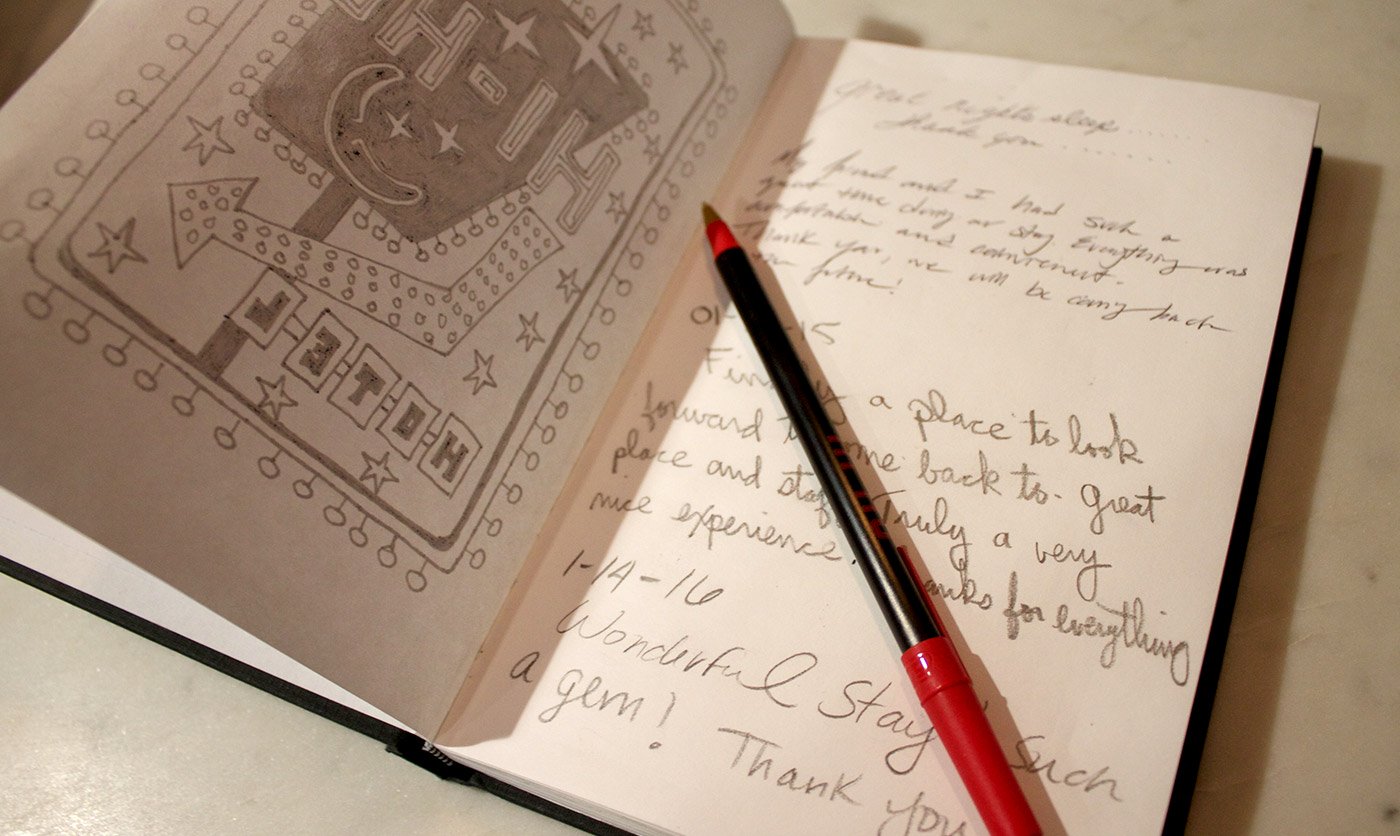 HOTEL
Great nights sleep ......
thank you ........
My friend and I had such a
great time during our stay. Everything was
comfortable and convenient.
Thank you, we will be coming back
future!
01- 15
Finally a place to look
forward to come back to. Great
place and staff. Truly a very
nice experience. anks for everything
1-14-'16
Wonderful Stay Such
a gem! Thank you